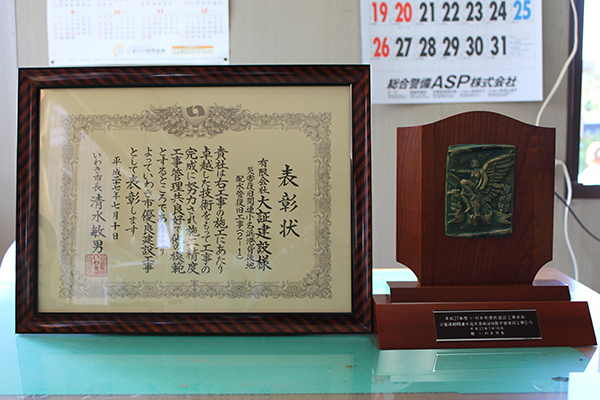 19 20 21 22 23 24 25
26 27 28 29 30 31
総合警備ASP株式会社
表彰状
有限会社 大証建設様
災害復旧関連小名浜港背後地
配水管復旧工事(2-1)
貴社は右工事の施工にあたり
卓越した技術をもって工事の
完成に努力され施工精度
工事管理共良好で他の模範
とするところであり
よっていわき市優良建設工事
として表彰します
平成二十七年七月十日
いわき市長 清水敏男